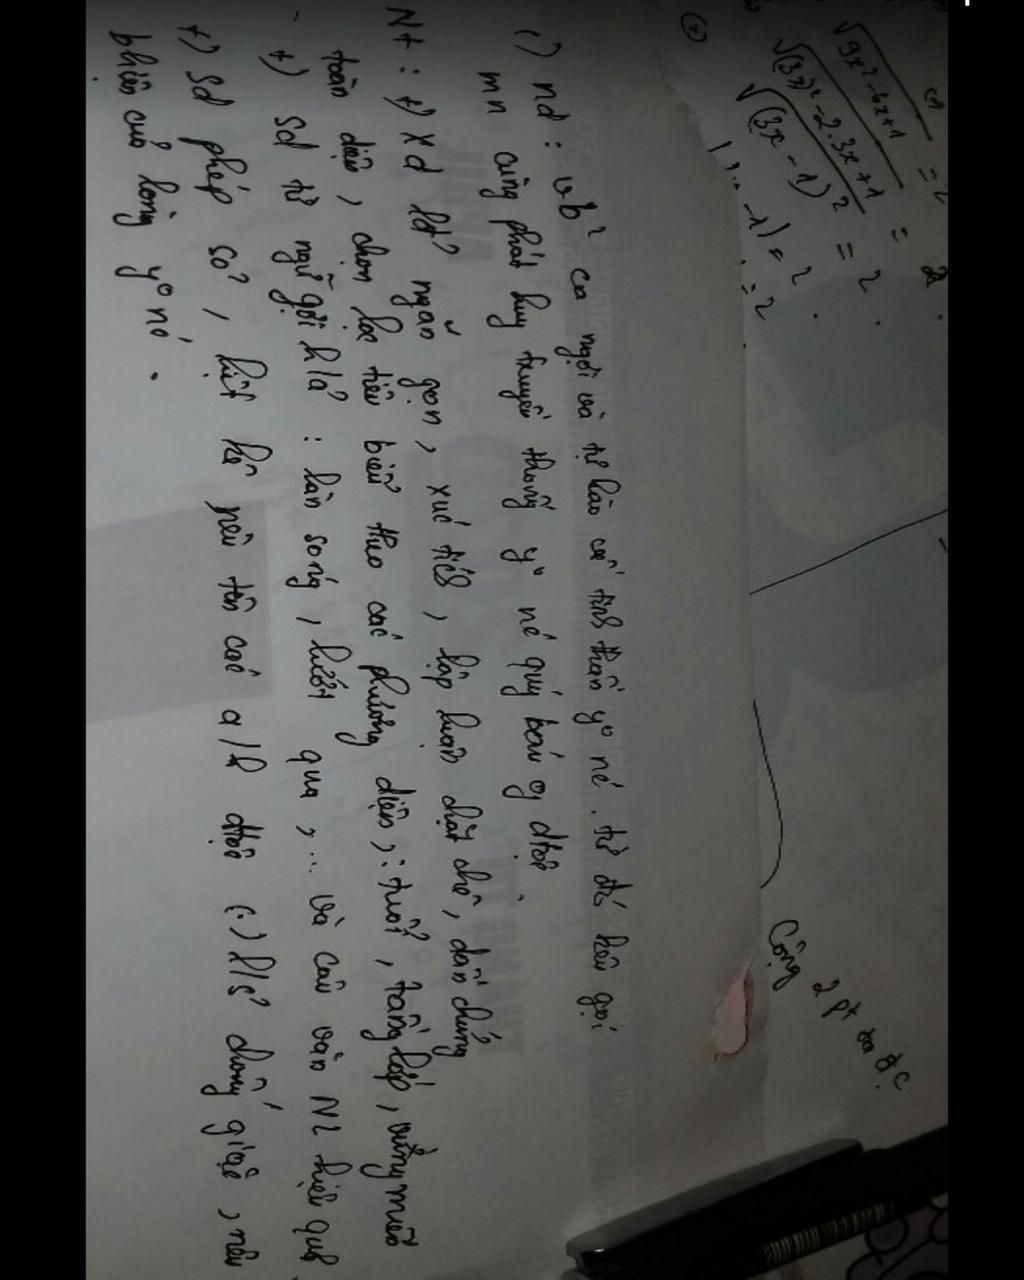 √9x²-6x+1 = 2
√(3x)²-2.3x+1 = 2.
√(3x-1)² = 2.
-1| = 2.
= 2
Cộng 2 pt ta đc
1) nd: vb² ca ngợi và tự hào về tinh thần y° nc. từ đó kêu gọi
mn cùng phát huy truyền thống y° nc quý báu of dtộc.
Nt: +) Xd lđ² ngắn gọn, xúc tích, lập luận chặt chẽ, dẫn chứng
toàn diện, chọn lọc tiêu biểu theo các phương diện: tuổi, tầng lớp, vùng miền
+) Sd từ ngữ gợi h/ả: làn sóng, lướt qua,... và câu văn NL hiệu quả
+) Sd phép so², liệt kê nêu tên các a/h dtộc (.) l/s² chống giặc, nêu
biểu của lòng y° nc.